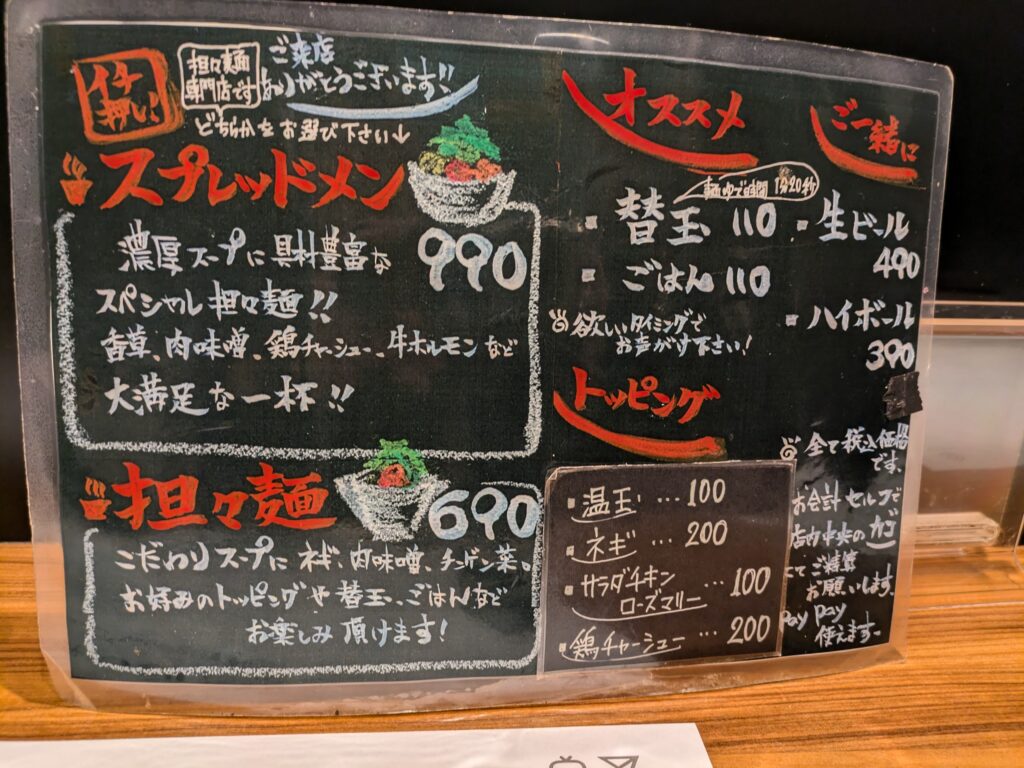 イチ
押し!
担々麺
専門店です
ご来店
ありがとうございます!!
どちらかをお選び下さい↓
スプレッドメン
990
濃厚スープに具材豊富な
スペシャル担々麺!!
香草、肉味噌、鶏チャーシュー、牛ホルモンなど
大満足な一杯!!
担々麺
690
こだわりスープにネギ、肉味噌、チンゲン菜。
お好みのトッピングや替玉、ごはんなど
お楽しみ頂けます!
オススメ
麺ゆで時間 1分20秒
替玉 110
ごはん 110
欲しいタイミングで
お声がけ下さい!
ご一緒に
生ビール
490
ハイボール
390
トッピング
温玉 … 100
ネギ … 200
サラダチキン
ローズマリー … 100
鶏チャーシュー … 200
全て税込価格
です、
お会計セルフで
店内中央のカゴ
にてご精算
お願いします。
pay pay
使えますー